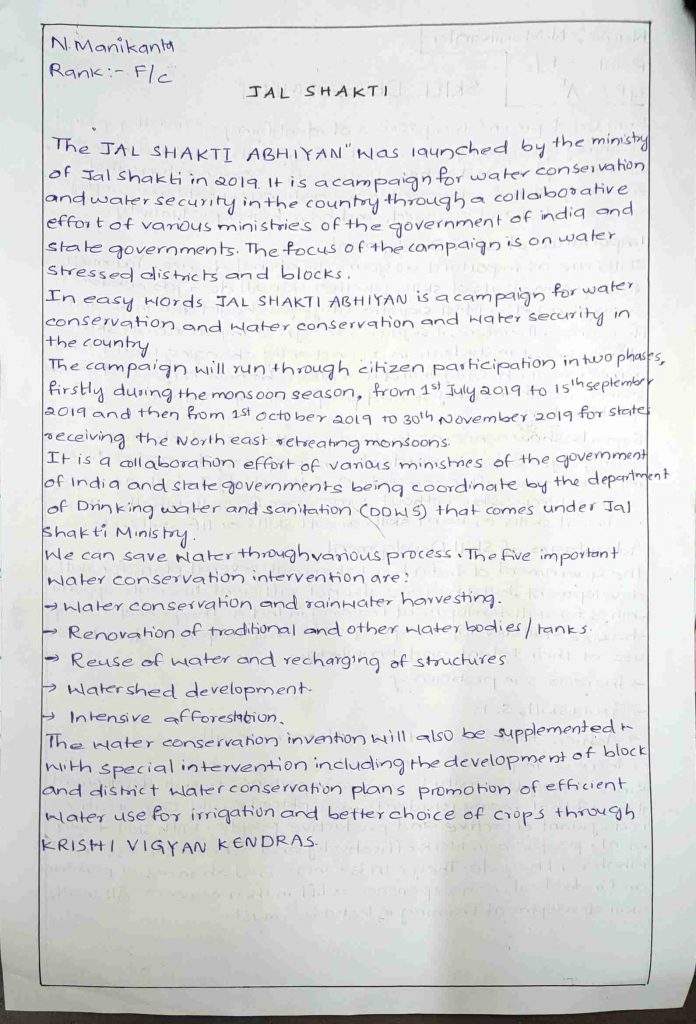 N. Manikanta
Rank:- F/c
JAL SHAKTI
The JAL SHAKTI ABHIYAN" was launched by the ministry
of Jal shakti in 2019. It is a campaign for water conservation
and water security in the country through a collaborative
effort of various ministries of the government of india and
state governments. The focus of the campaign is on water
stressed districts and blocks.
In easy words JAL SHAKTI ABHIYAN is a campaign for water
conservation and water conservation and water security in
the country
The campaign will run through citizen participation in two phases,
firstly during the monsoon season, from 1st July 2019 to 15th september
2019 and then from 1st october 2019 to 30th November 2019 for states
receiving the North east retreating monsoons.
It is a collaboration effort of various ministries of the government
of India and state governments being coordinate by the department
of Drinking water and sanitation (DDWS) that comes under Jal
Shakti Ministry.
We can save water through various process. The five important
water conservation intervention are:
→ Water conservation and rainwater harvesting.
→ Renovation of traditional and other water bodies/tanks.
→ Reuse of water and recharging of structures
→ Watershed development.
→ Intensive afforestation.
The water conservation invention will also be supplemented
with special intervention including the development of block
and district water conservation plans promotion of efficient
water use for irrigation and better choice of crops through
KRISHI VIGYAN KENDRAS.